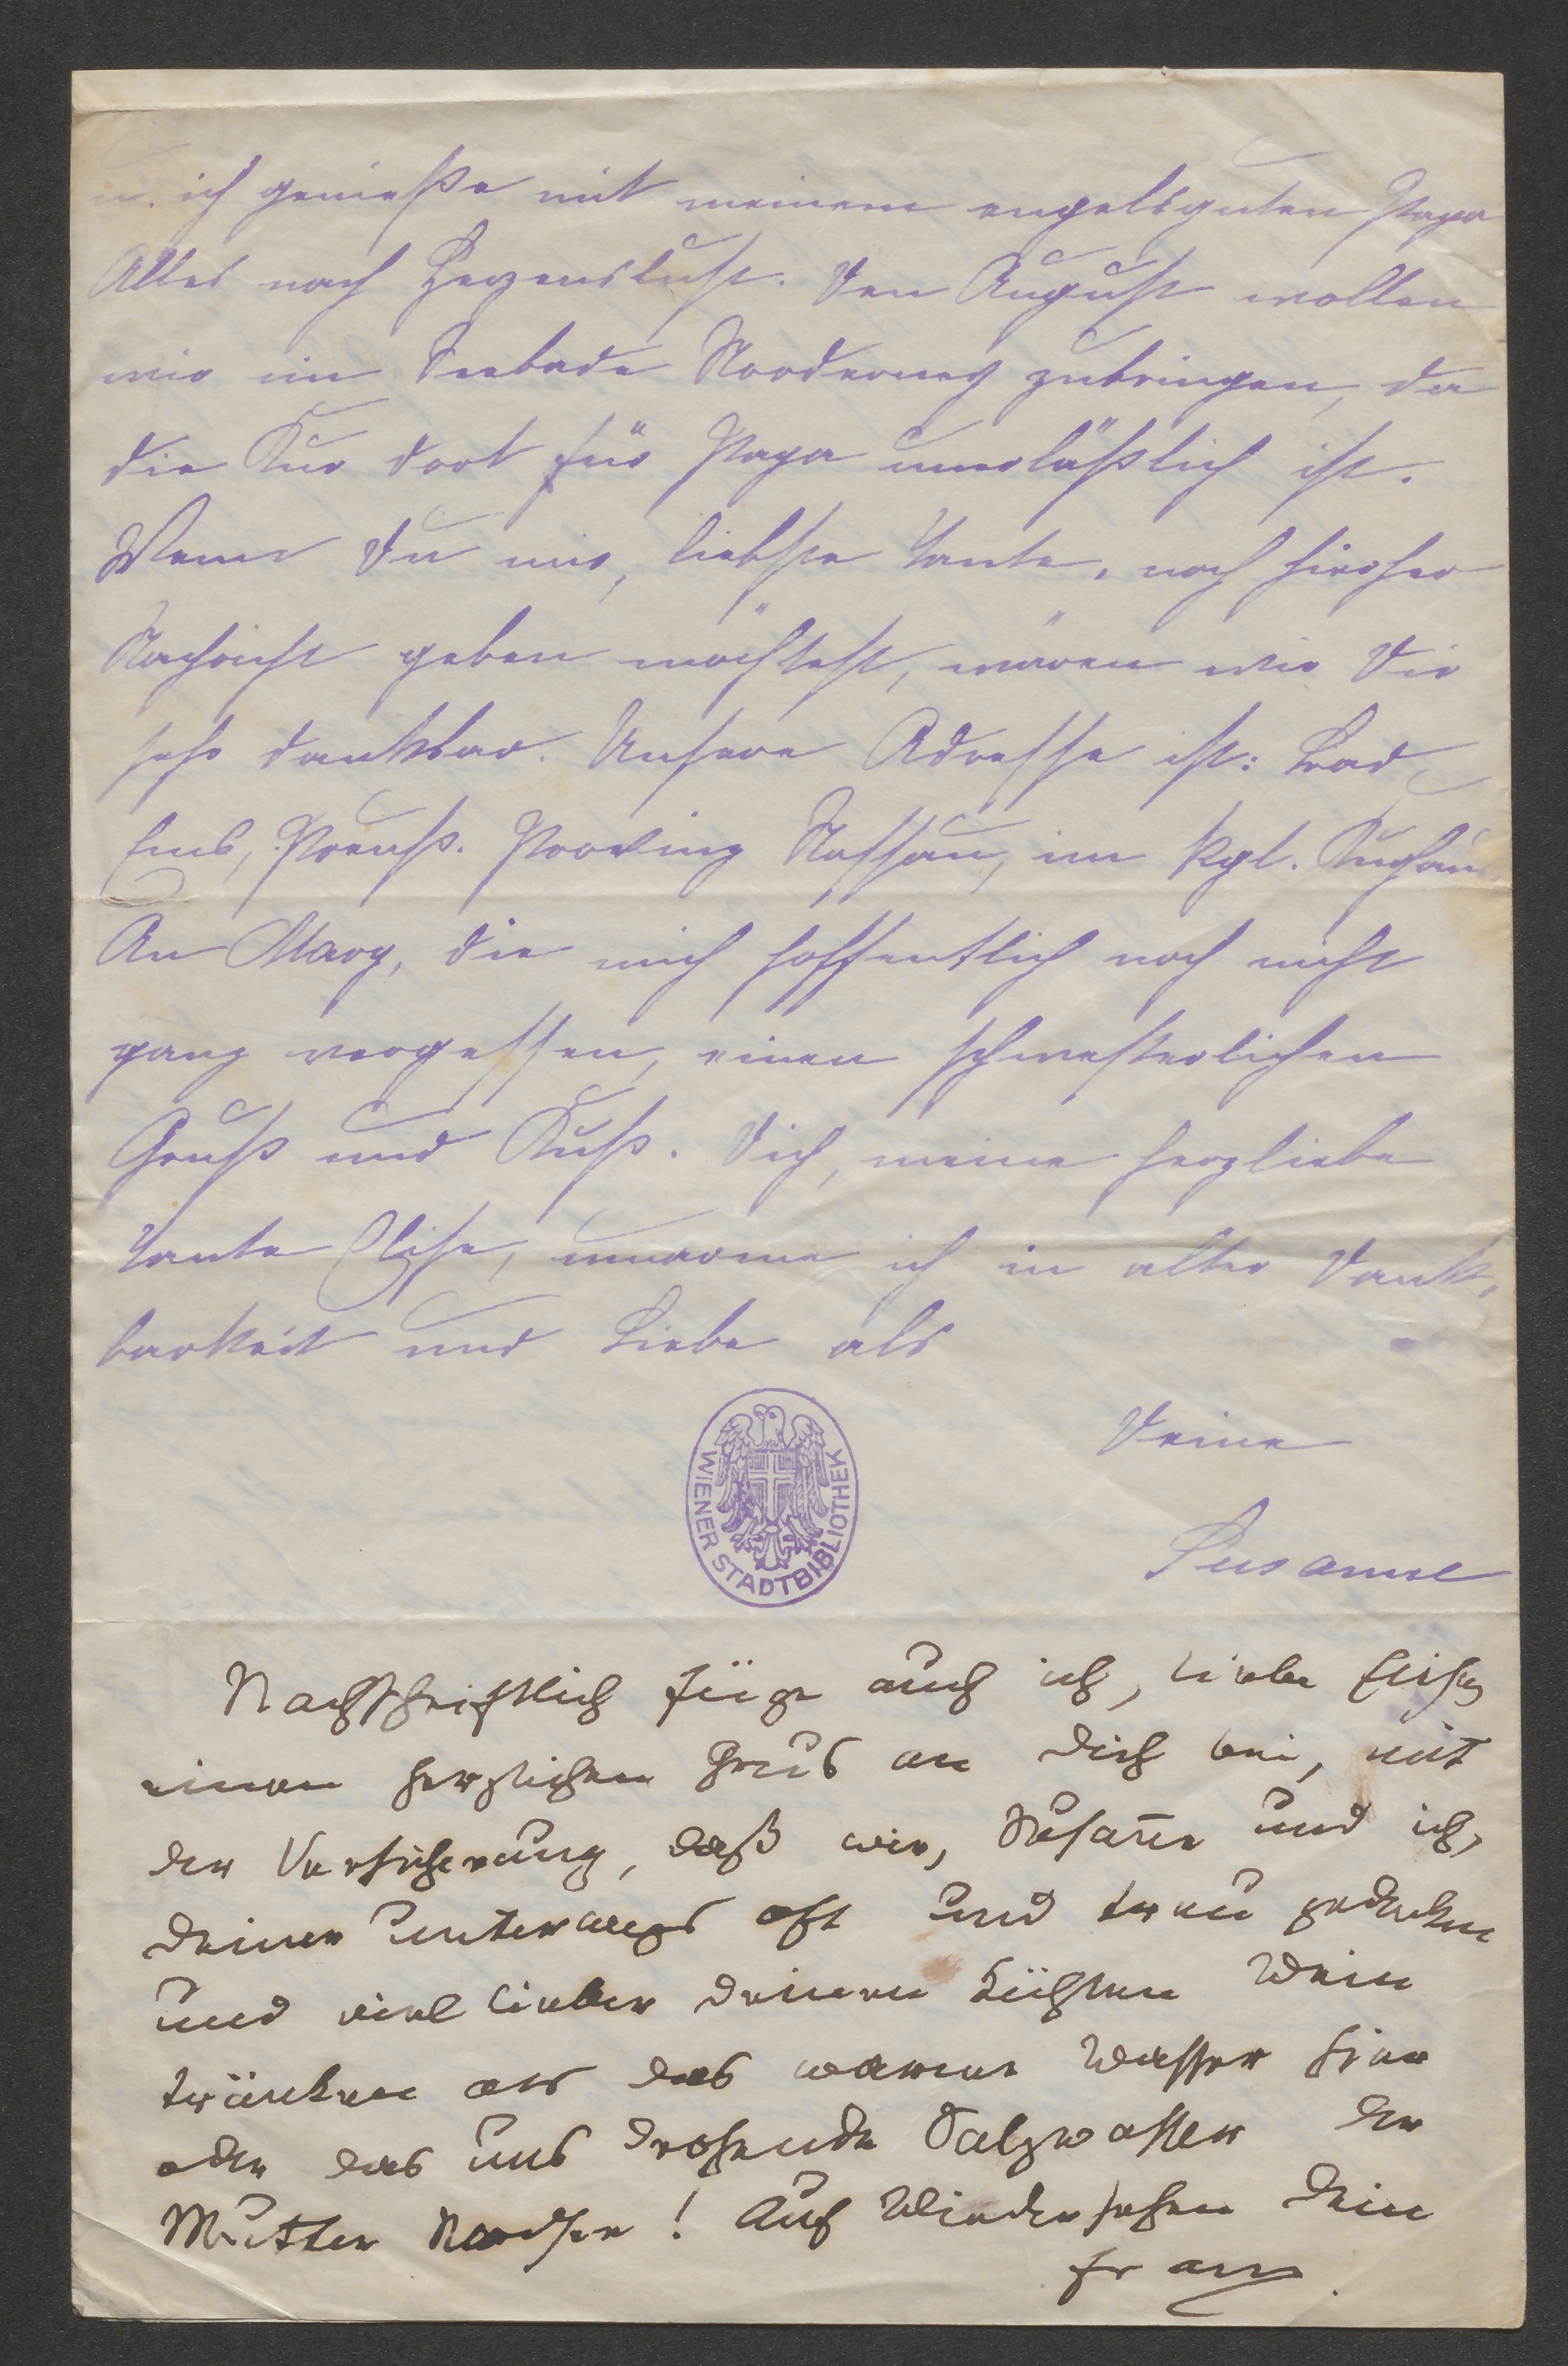 u. ich genieße mit meinem engelsguten Papa
Alles nach Herzenslust. Den August wollen
wir im Seebade Norderney zubringen, da
die Kur dort für Papa unerläßlich ist.
Wenn Du mir, liebste Tante, noch hierher
Nachricht geben möchtest, wären wir Dir
sehr dankbar. Unsere Adresse ist: Bad
Ems, Preuß. Provinz Nassau, im kgl. Kurhaus.
An Mary, die mich hoffentlich noch nicht
ganz vergessen, einen schwesterlichen
Gruß und Kuß. Dich, meine herzliebe
Tante Elise, umarme ich in alter Dank-
barkeit und Liebe als
Deine
Susanne
WIENER STADTBIBLIOTHEK
Nachschriftlich füge auch ich, liebe Elise,
einen herzlichen Grus an Dich bei, mit
der Versicherung, daß wir, Susan̄e und ich,
Deiner unterwegs oft und treu gedenken
und viel lieber Deinen kühlen Wein
tränken als das warme Wasser hier
oder das uns drohende Salzwasser der
Mutter Nordsee! Auf Wiedersehen Dein
Franz.